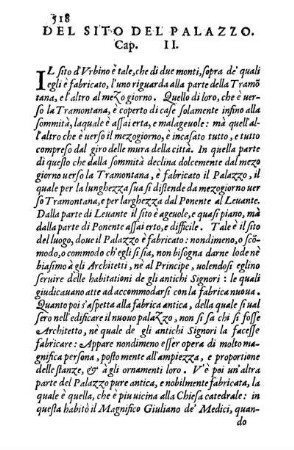 518
DEL SITO DEL PALAZZO.
Cap. II.
IL sito d'Vrbino è tale, che di due monti, sopra de' quali
egli è fabricato, l'uno riguarda alla parte della Tramõ
tana, e l'altro al mezo giorno. Quello di loro, che è uer-
so la Tramontana, è coperto di case solamente infino alla
sommità, laquale è assai erta, e malageuole: mà quell'al-
l'altro che è uerso il mezogiorno, è incasato tutto, e tutto
compreso dal giro delle mura della città. In quella parte
di questo che dalla sommità declina dolcemente dal mezo
giorno uerso la Tramontana, è fabricato il Palazzo, il
quale per la lunghezza sua si distende da mezogiorno uer
so Tramontana, e per larghezza dal Ponente al Leuante.
Dalla parte di Leuante il sito è ageuole, e quasi piano, mà
dalla parte di Ponente assai erto, e difficile. Tale è il sito
del luogo, doue il Palazzo è fabricato: nondimeno, o scõ-
modo, o commodo ch'egli si sia, non bisogna darne lode nè
biasimo à gli Architetti, nè al Principe, uolendosi eglino
seruire delle habitationi de gli antichi Signori: le quali
giudicauano atte ad accommodarsi con la fabrica nuoua.
Quanto poi s'aspetta alla fabrica antica, della quale si ual
sero nell'edificare il nuouo palazzo, non si sà chi si fosse
Architetto, nè quale de gli antichi Signori la facesse
fabricare: Appare nondimeno esser opera di molto ma-
gnifica persona, posto mente all'ampiezza, e proportione
delle stanze, & à gli ornamenti loro. V'è poi un'altra
parte del Palazzo pure antica, e nobilmente fabricata, la
quale è quella, che è piu uicina alla Chiesa catedrale: in
questa habitò il Magnifico Giuliano de' Medici, quan-
do